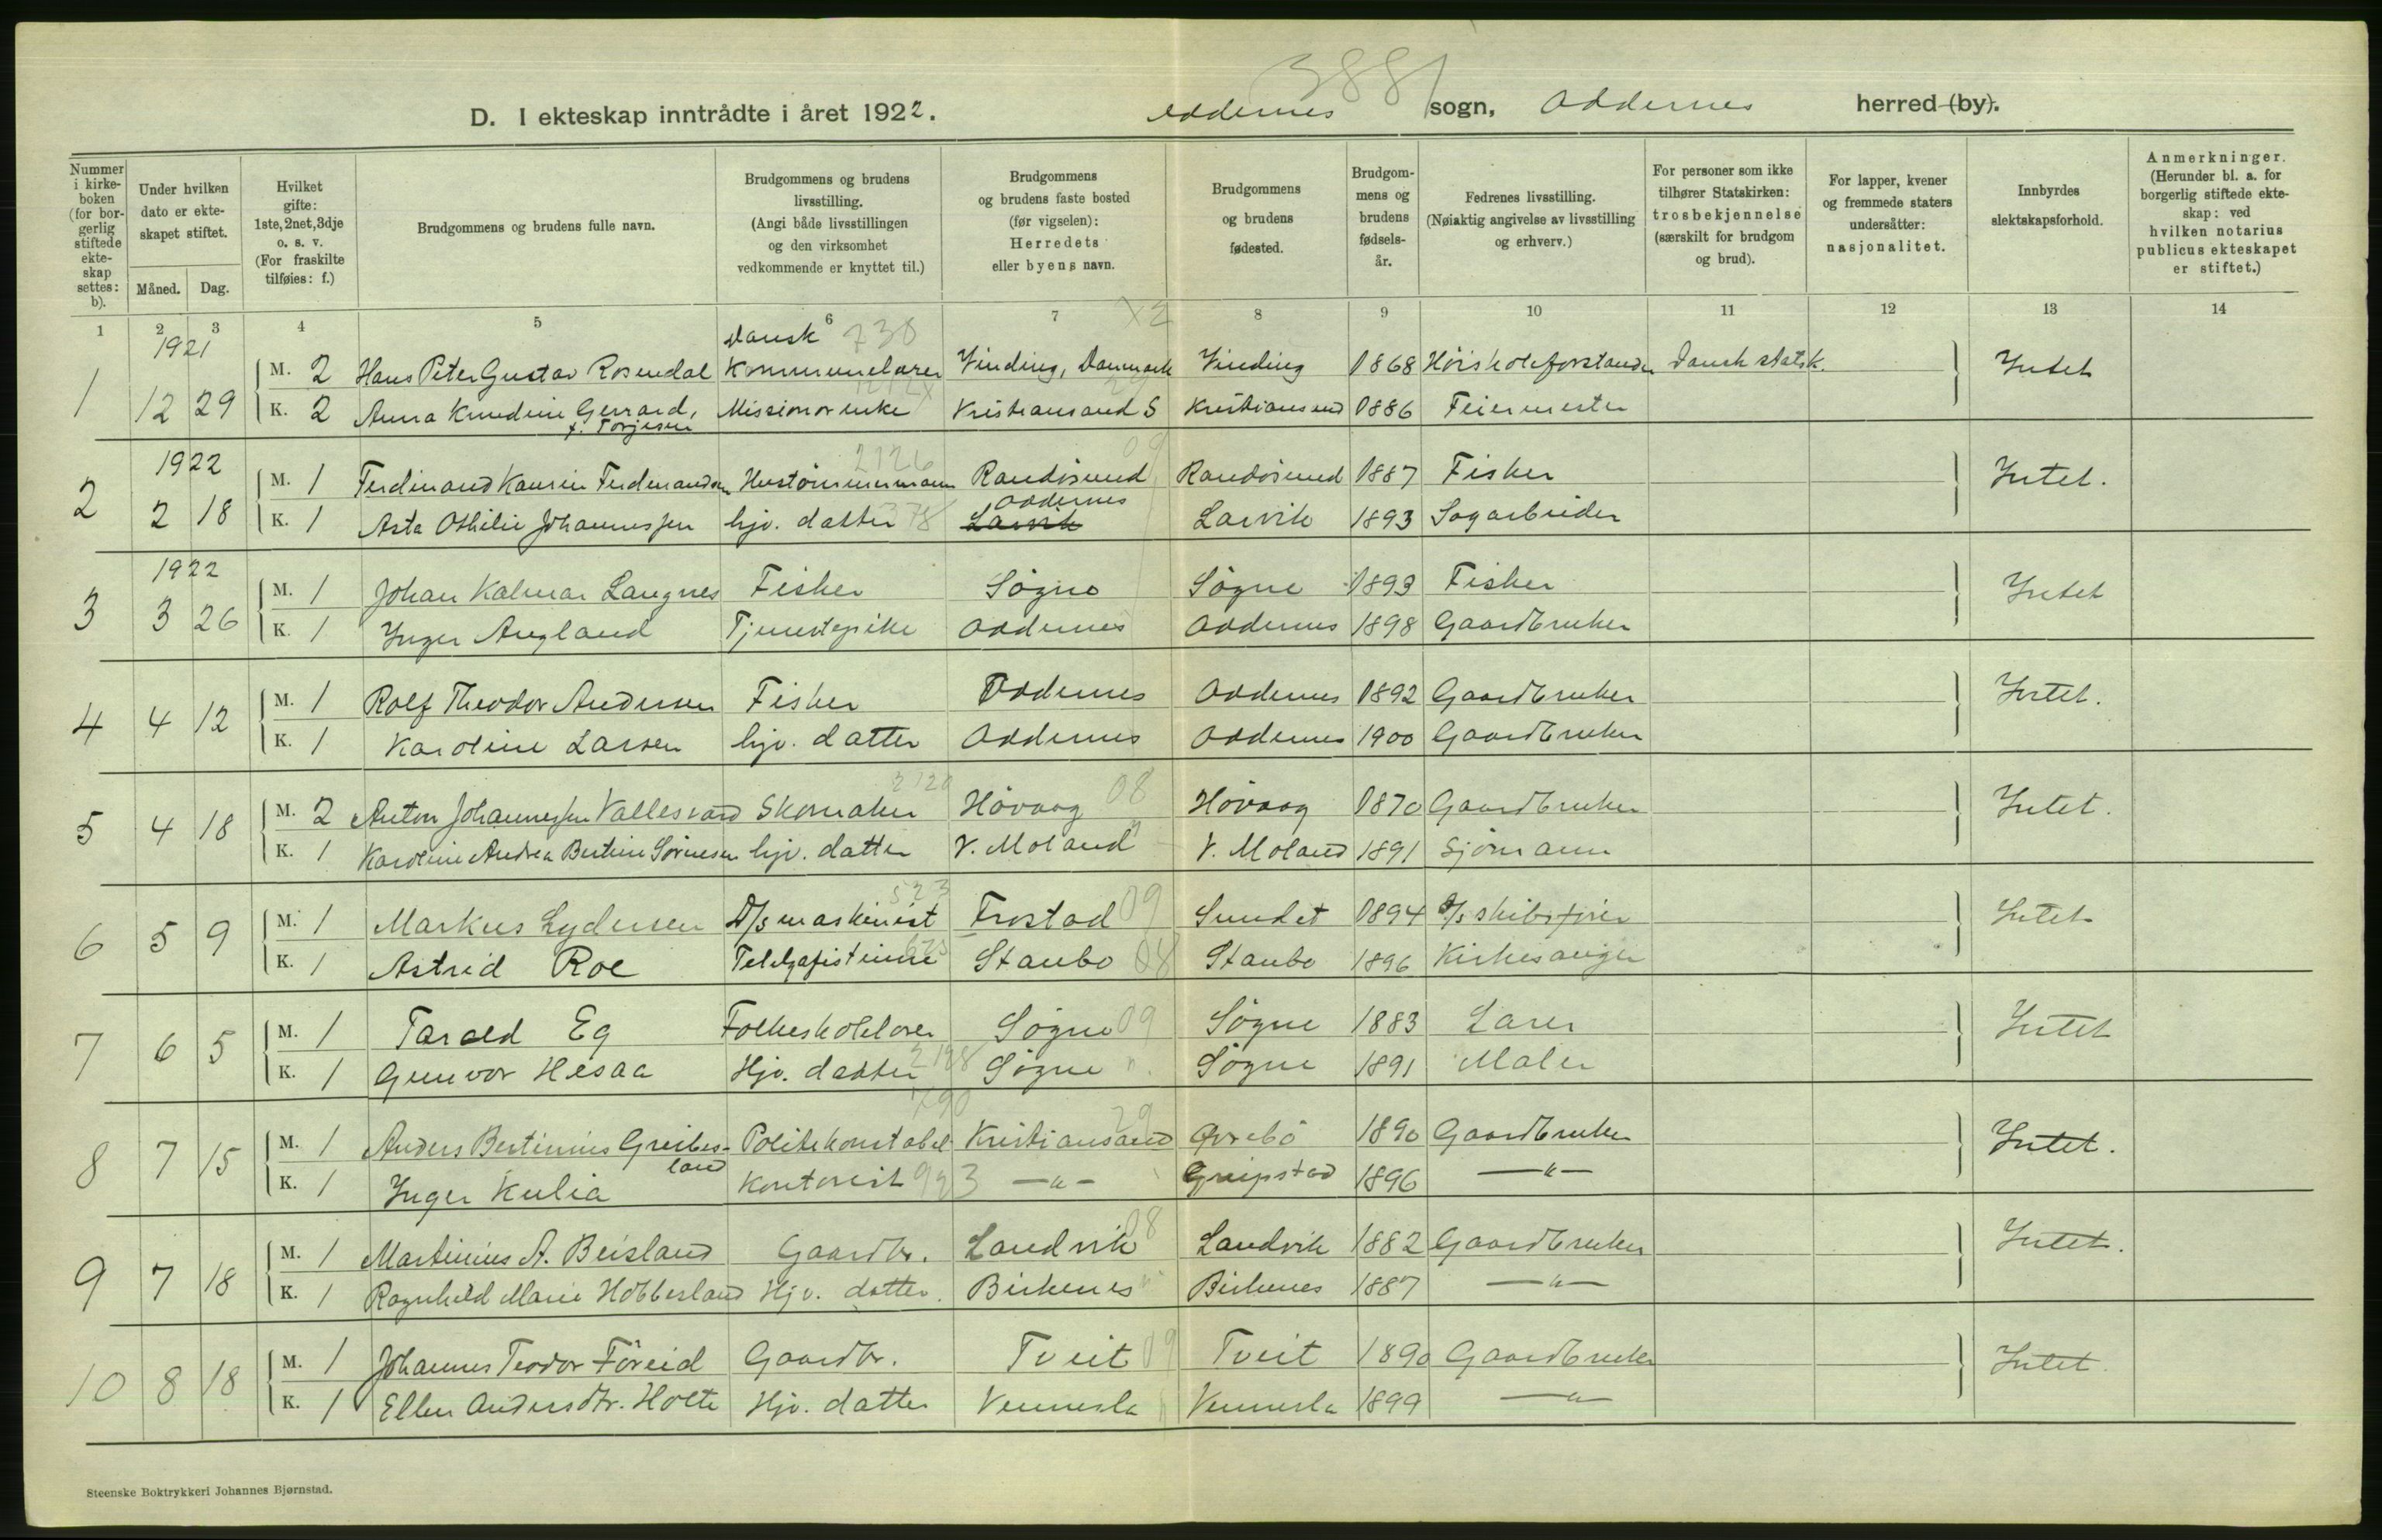 3881
D. I ekteskap inntrådte i året 1922. Oddernes sogn, Oddernes herred (by).
Nummer i kirkeboken (for borgerlig stiftede ekteskap settes: b).
Under hvilken dato er ekteskapet stiftet.
Måned. Dag.
Hvilket gifte: 1ste, 2net, 3dje o. s. v. (For fraskilte tilføies: f.)
Brudgommens og brudens fulle navn.
Brudgommens og brudens livsstilling. (Angi både livsstillingen og den virksomhet vedkommende er knyttet til.)
Brudgommens og brudens faste bosted (før vigselen): Herredets eller byens navn.
Brudgommens og brudens fødested.
Brudgommens og brudens fødselsår.
Fedrenes livsstilling. (Nøiaktig angivelse av livsstilling og erhverv.)
For personer som ikke tilhører Statskirken: trosbekjennelse (særskilt for brudgom og brud).
For lapper, kvener og fremmede staters undersåtter: nasjonalitet.
Innbyrdes slektskapsforhold.
Anmerkninger. (Herunder bl. a. for borgerlig stiftede ekteskap: ved hvilken notarius publicus ekteskapet er stiftet.)
1 2 3 4 5 6 7 8 9 10 11 12 13 14
1921 Dansk 730 X2
M. 2 Hans Peter Gustav Rosendal Kommunelærer Vinding, Danmark Vinding 1868 Höiskoleforstander Dansk statsk. Intet
1 12 29 K. 2 Anna Knudine Gerrard, Missionærenke Kristiansand S Kristiansand 1886 Feiermester
f. Torjesen
1922 2126 09
M. 1 Ferdinand Kaurin Ferdinandsen Hustömmermann Randösund Randösund 1887 Fisker Intet.
Oddernes
2 2 18 K. 1 Asta Othilie Johannessen hjv. datter 378 Larvik Larvik 1893 Sagarbeider
1922
M. 1 Johan Kalmar Langnes Fisker Sögne Sögne 1893 Fisker Intet
3 3 26 K. 1 Inger Augland Tjenestepike Oddernes Oddernes 1898 Gaardbruker
M. 1 Rolf Theodor Andersen Fisker Oddernes Oddernes 1892 Gaardbruker Intet.
4 4 12 K. 1 Karoline Larsen hjv. datter Oddernes Oddernes 1900 Gaardbruker
M. 2 Anton Johannessen Vallesværd Skomaker Hövaag 08 Hövaag 1870 Gaardbruker Intet.
5 4 18 K. 1 Karoline Andrea Bertine Sörensen hjv. datter V. Moland V. Moland 1891 Sjömann
523
M. 1 Markus Lydersen D/s maskinist Frostad 09 Sundet 1894 S/s skibsförer Intet
6 5 9 K. 1 Astrid Roe Telegrafistinne Staubo 08 Staubo 1896 Kirkesanger
M. 1 Tarald Eg Folkeskolelærer Sögne 09 Sögne 1883 Lærer Intet
7 6 5 K. 1 Gunvor Hesaa Hjv. datter 2198 Sögne " Sögne 1891 Maler
790 29
M. 1 Anders Bertinius Greibes- Politikonstabel Kristiansand Øvrebö 1890 Gaardbruker Intet.
land
8 7 15 K. 1 Inger Kulia Kontorist 993 —"— Greipstad 1896 —"—
08
M. 1 Martinius A. Beisland Gaardbr. Landvik Landvik 1882 Gaardbruker Intet.
9 7 18 K. 1 Ragnhild Marie Höbbesland Hjv. datter. Birkenes " Birkenes 1887 —"—
M. 1 Johannes Teodor Föreid Gaardbr. Tveit 09 Tveit 1890 Gaardbruker Intet.
10 8 18 K. 1 Ellen Andersdtr. Holte Hjv. datter Vennesla Vennesla 1899 —"—
Steenske Boktrykkeri Johannes Bjørnstad.